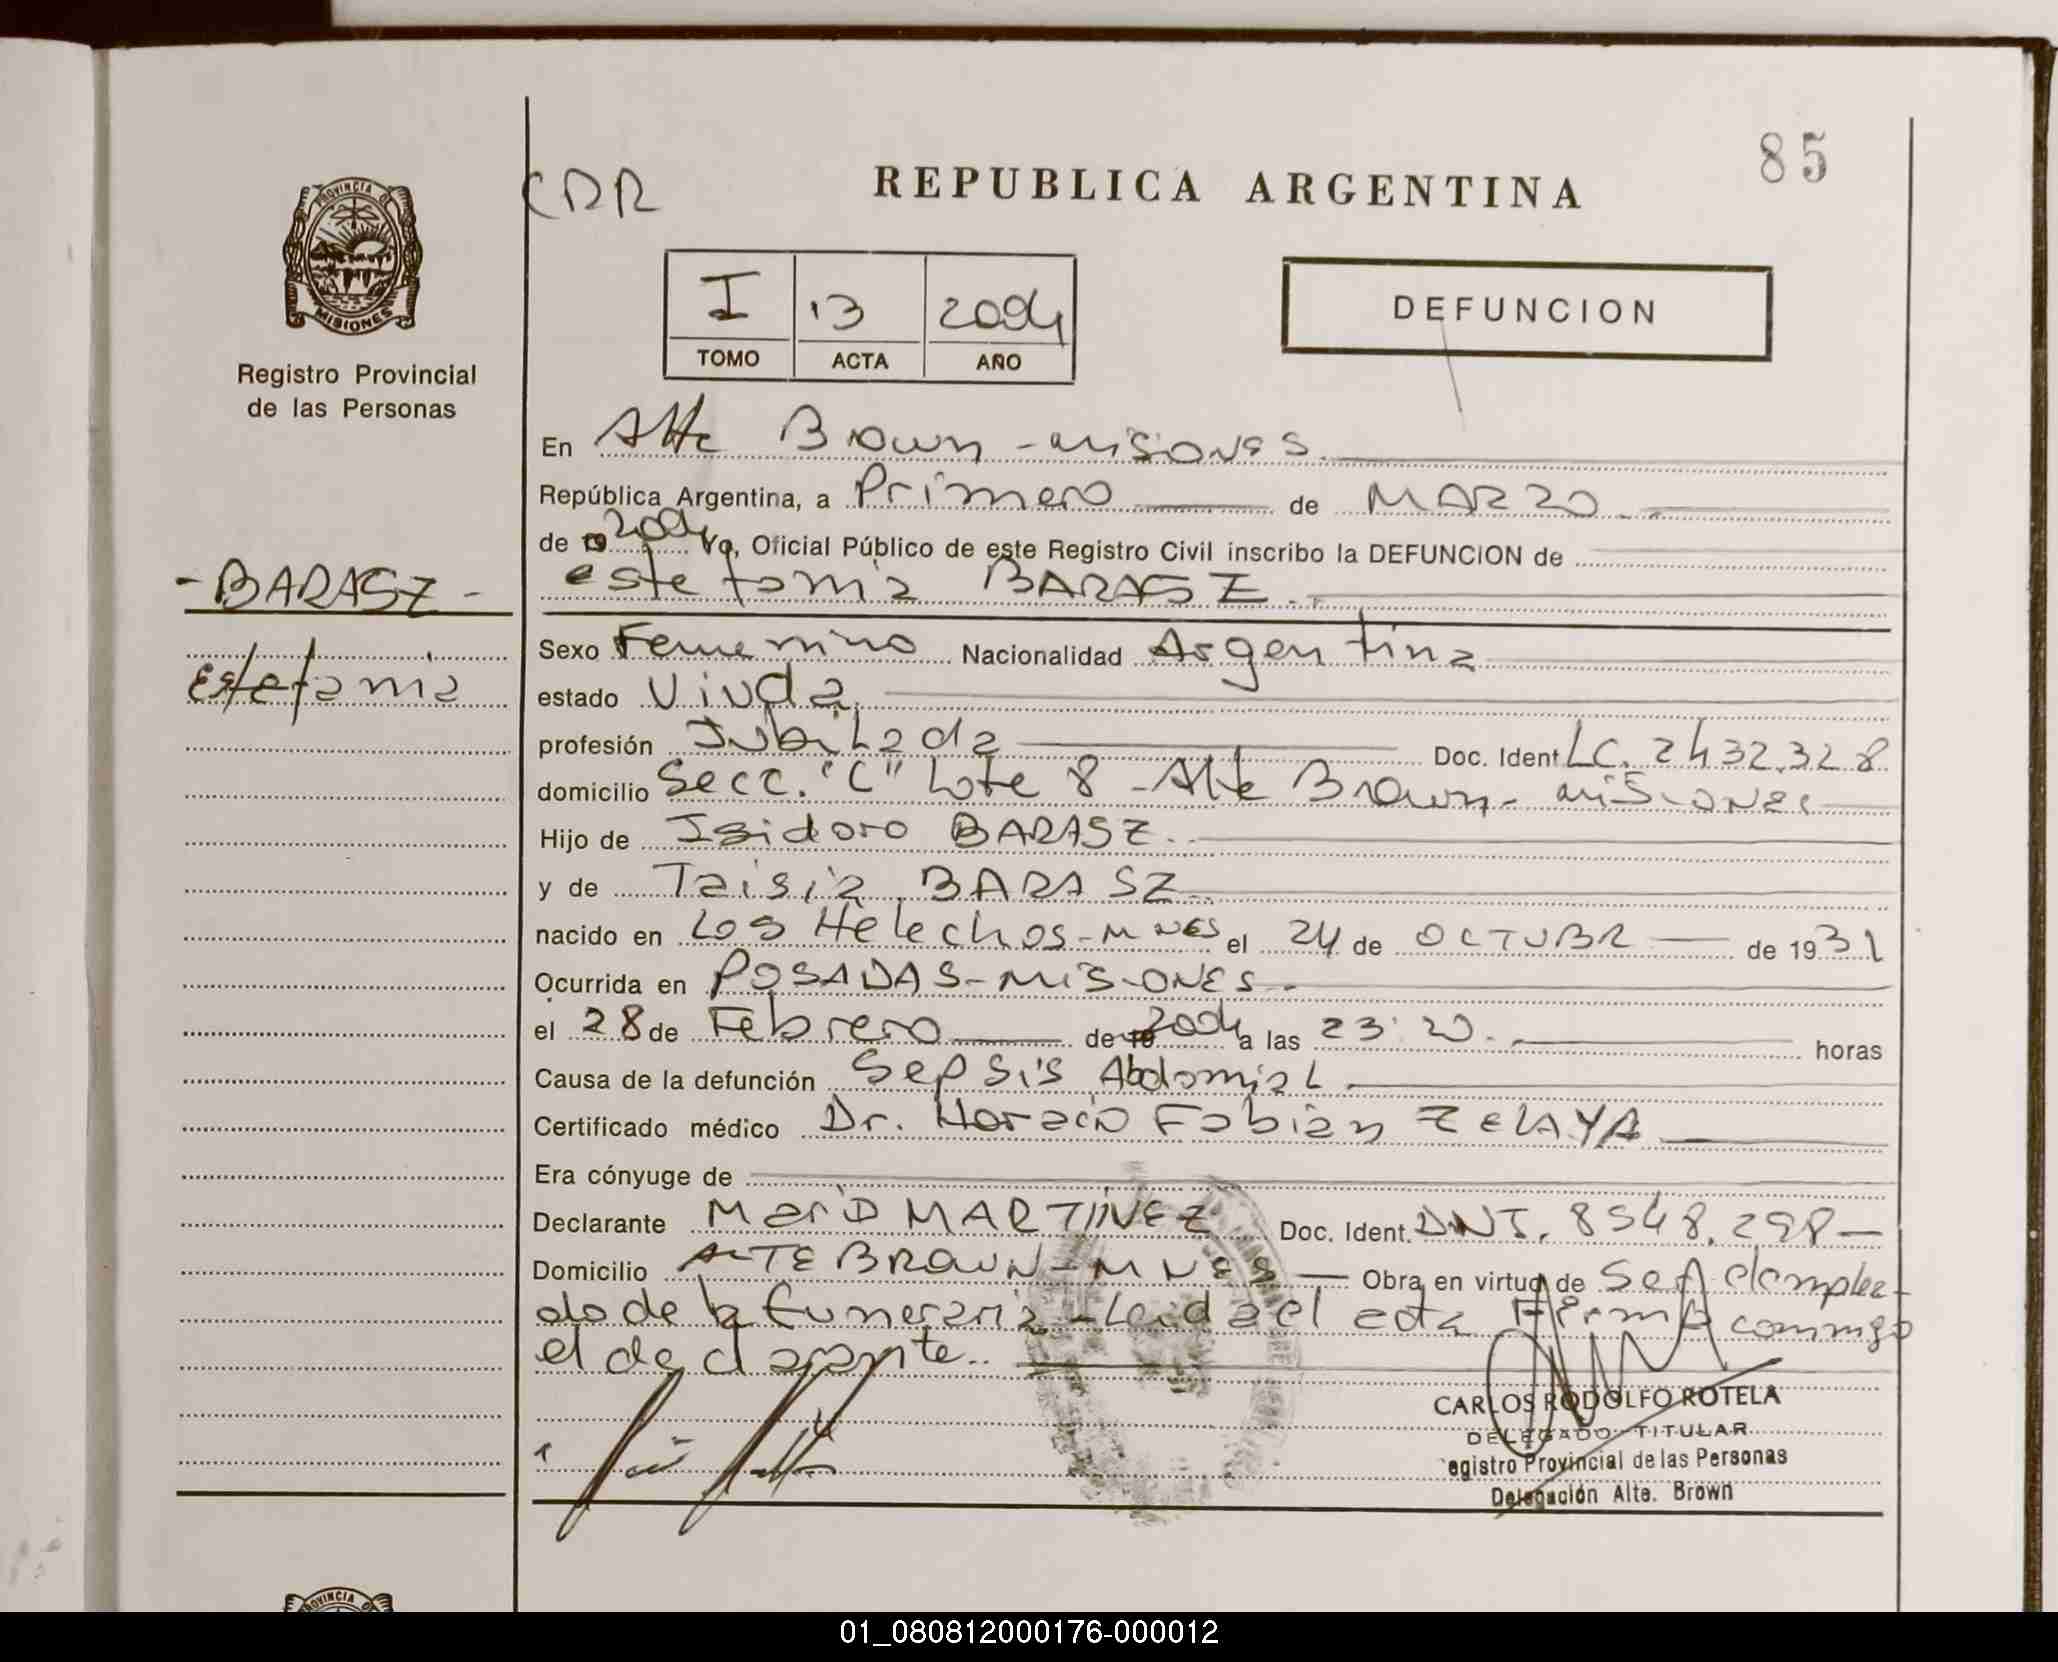 85
CDR
REPUBLICA ARGENTINA
PROVINCIA DE
MISIONES
Registro Provincial
de las Personas
I 13 2004
TOMO ACTA AÑO
DEFUNCION
En Alte Brown - misiones
República Argentina, a Primero de MARZO
de 19 2004 Yo, Oficial Público de este Registro Civil inscribo la DEFUNCION de
- BARASZ -
estefania BARASZ
Estefania
Sexo Femenino Nacionalidad Argentina
estado Viuda
profesión Jubilada Doc. Ident LC. 2432.328
domicilio Secc. "C" Lote 8 - Alte Brown - misiones
Hijo de Isidoro BARASZ
y de Taisia BARASZ
nacido en Los Helechos - MNES el 24 de OCTUBR de 1931
Ocurrida en POSADAS - MISIONES
el 28 de Febrero de 19 2004 a las 23:20 horas
Causa de la defunción Sepsis Abdomial
Certificado médico Dr. Horacio Fabian ZELAYA
Era cónyuge de
Declarante Mario MARTINEZ Doc. Ident. DNI. 8548.298
Domicilio ALTE BROWN - MNES Obra en virtud de Ser emplea-
do de la funeraria - Leida el acta Firma conmigo
el declarante..
CARLOS RODOLFO ROTELA
DELEGADO TITULAR
egistro Provincial de las Personas
Delegación Alte. Brown
PROVINCIA DE
01_080812000176-000012